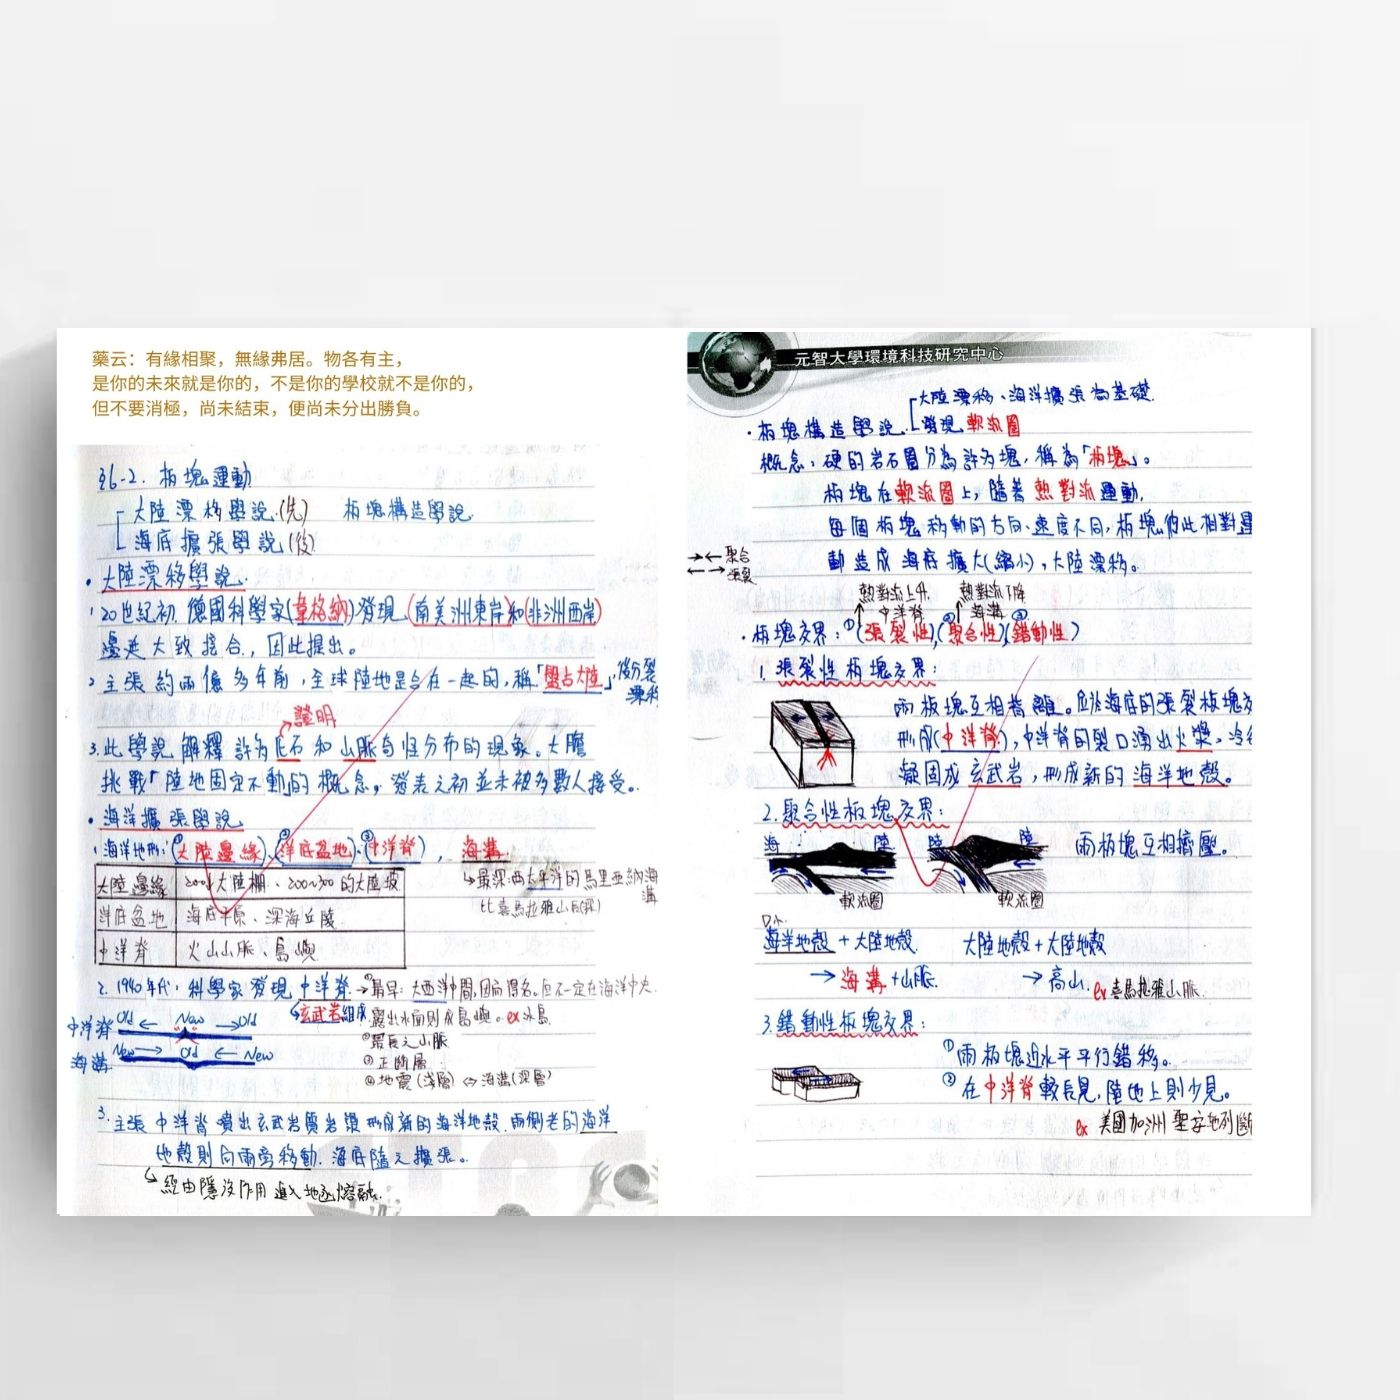 藥云：有緣相聚，無緣弗居。物各有主，
是你的未來就是你的，不是你的學校就不是你的，
但不要消極，尚未結束，便尚未分出勝負。
§6-2. 板塊運動
大陸漂移學說(先) 板塊構造學說
海底擴張學說(後)
•大陸漂移學說.
1.20世紀初，德國科學家(韋格納)發現(南美洲東岸)和(非洲西岸)
邊延大致接合，因此提出。
2.主張約兩億多年前，全球陸地是合在一起的，稱「盤古大陸」，後分裂
漂移
證明
3.此學說解釋許多化石和山脈奇怪分布的現象。大膽
挑戰「陸地固定不動」的概念，發表之初並未被多數人接受。
•海洋擴張學說
1.海洋地形：①(大陸邊緣)、②(洋底盆地)、③(中洋脊)，海溝
大陸邊緣 200m大陸棚、200~300的大陸坡
→最深：西太平洋的馬里亞納海
溝
洋底盆地 海底平原、深海丘陵
比喜馬拉雅山長(深)
中洋脊 火山山脈、島嶼
2.1940年代，科學家發現中洋脊→①最早：大西洋中間，因而得名。但不一定在海洋中央.
玄武岩組成 露出水面則成島嶼。ex冰島.
中洋脊 Old ← New → Old
②最長之山脈
海溝 New → Old ← New
③正斷層
④地震(淺層)⇔海溝(深層)
3.主張中洋脊噴出玄武岩質岩漿形成新的海洋地殼.兩側老的海洋
地殼則向兩旁移動.海底隨之擴張。
↳經由隱沒作用進入地函熔融.
元智大學環境科技研究中心
大陸漂移、海洋擴張為基礎.
•板塊構造學說
發現軟流圈
概念：硬的岩石圈分為許多塊，稱為「板塊」。
板塊在軟流圈上，隨著熱對流運動.
每個板塊移動的方向、速度不同，板塊彼此相對運
動造成海底擴大(縮小)，大陸漂移。
→← 聚合
←→ 張裂
熱對流上升 熱對流下降
中洋脊 海溝
•板塊交界：①(張裂性)②(聚合性)③(錯動性)
1.張裂性板塊交界：
兩板塊互相揹離。位於海底的張裂板塊交
形成(中洋脊)，中洋脊的裂口湧出火漿，冷卻
凝固成玄武岩，形成新的海洋地殼。
2.聚合性板塊交界：
海 陸 陸 陸 兩板塊互相擠壓。
軟流圈 軟流圈
海洋地殼+大陸地殼 大陸地殼+大陸地殼
→海溝+山脈. →高山. ex喜馬拉雅山脈.
3.錯動性板塊交界：
①兩板塊邊水平平行錯移。
②在中洋脊較長見，陸地上則少見。
ex 美國加洲聖安地列斷